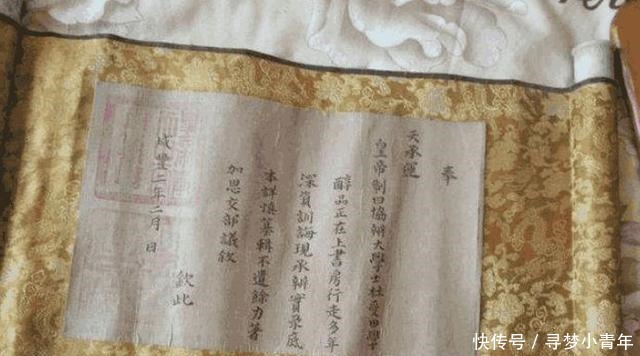 奉
天承運
皇帝制曰協辦大學士杜受田學
醇品正在上書房行走多年
深資訓誨現承辦實录底
本詳慎纂輯不遺餘力著
加恩交部議敘
欽此
咸豐二年二月 日
快传号 / 寻梦小青年